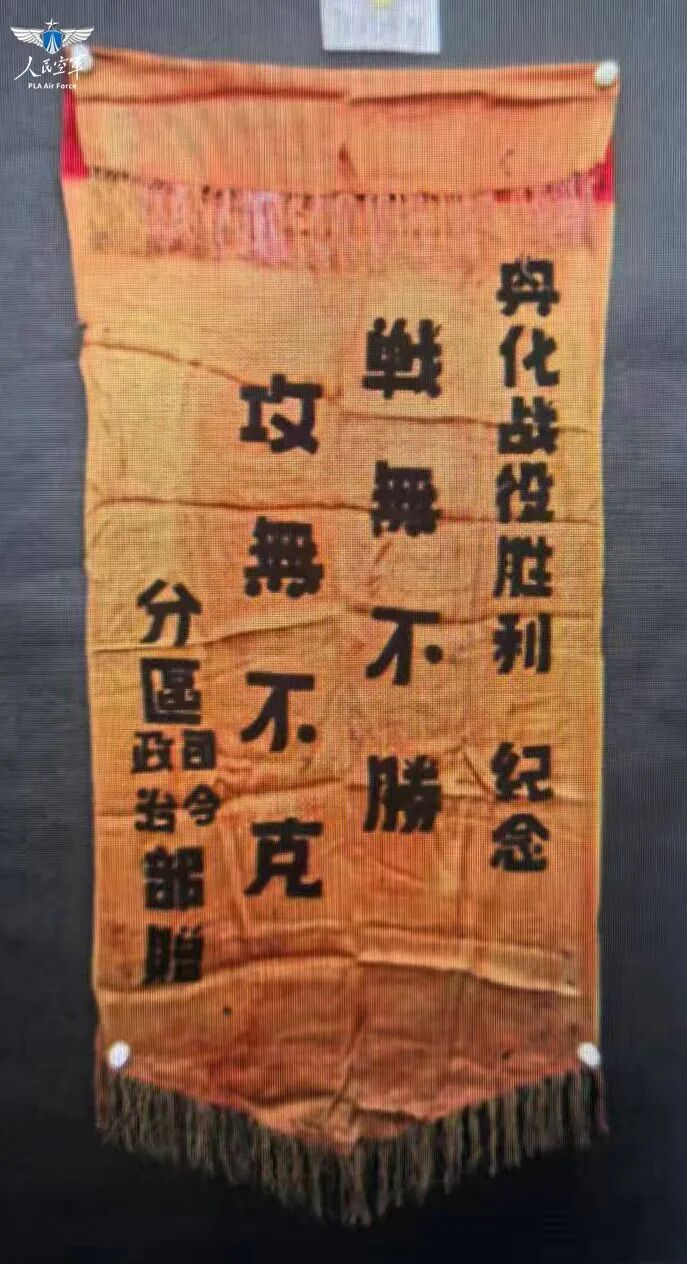 人民空军
PLA Air Force
兴化战役胜利 纪念
戦無不勝
攻無不克
分區司令政治部贈